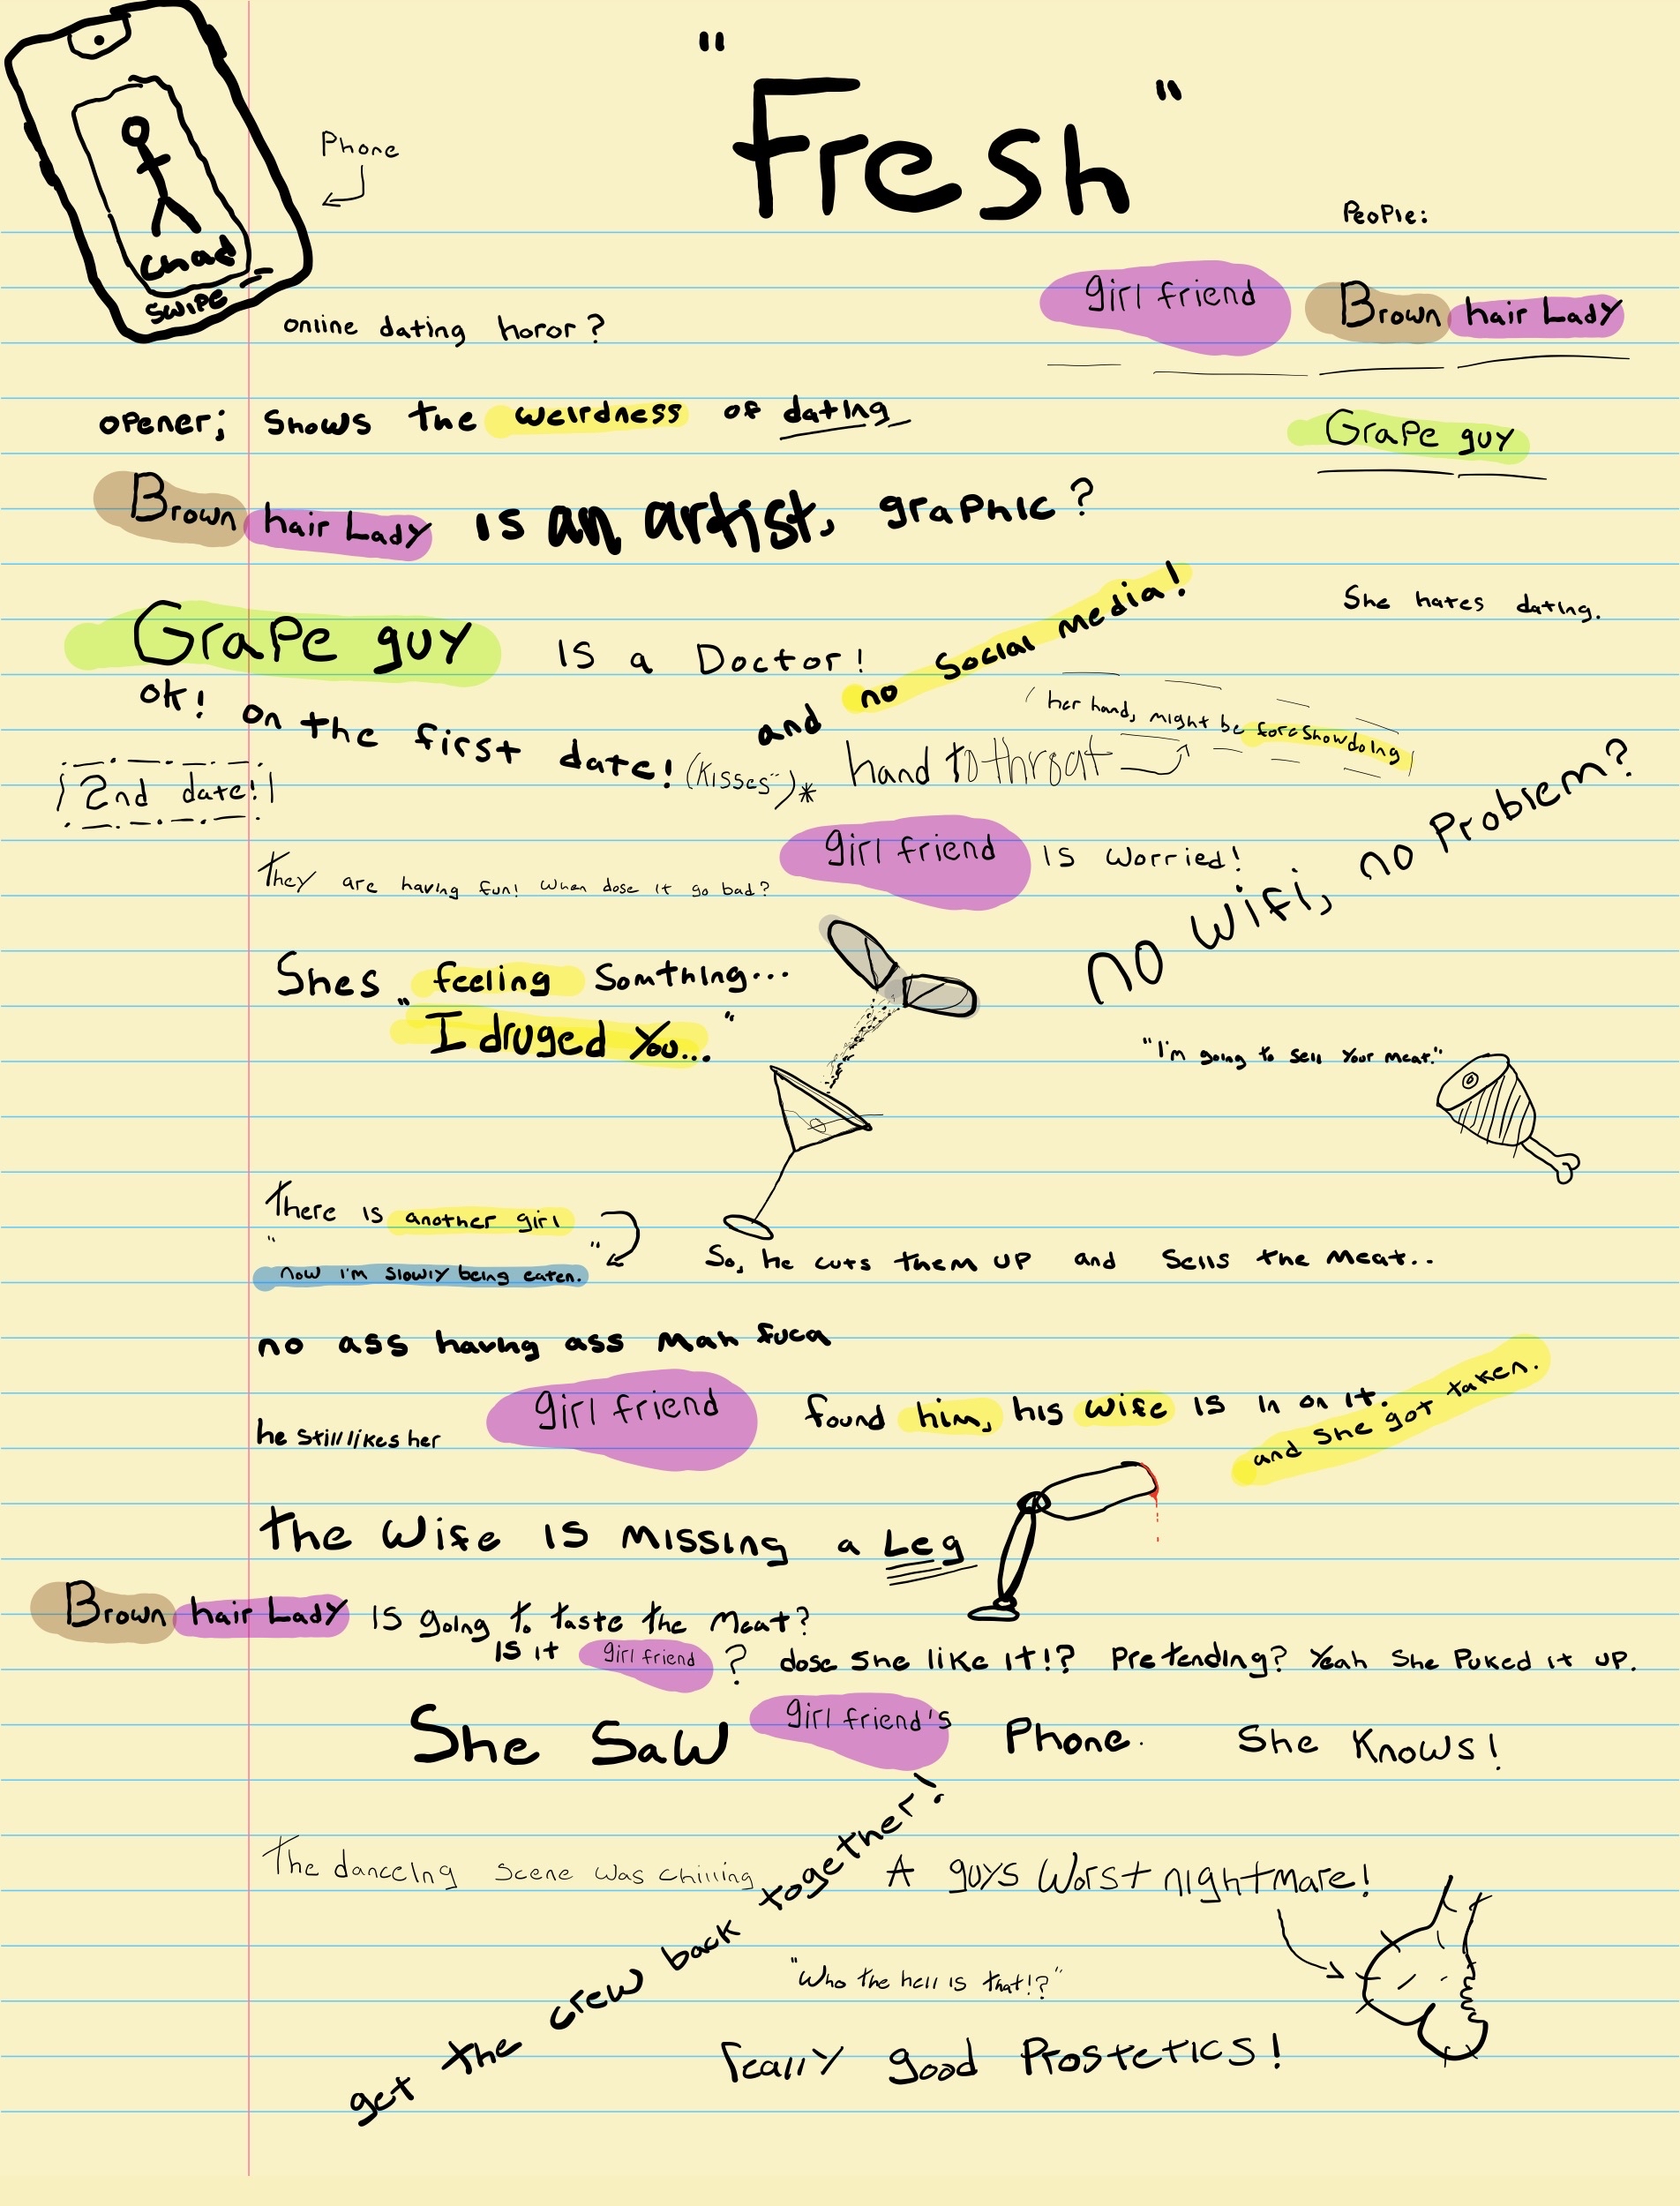 "Fresh"
Phone
Chad
SWIPE
People:
girl friend
Brown hair Lady
Grape guy
online dating horor?
opener; shows the weirdness of dating
Brown hair Lady is an artist, graphic?
She hates dating.
Grape guy is a Doctor!
and no social media!
ok! on the first date! (kisses)* hand to throat
her hand, might be foreshowdoing
2nd date!
They are having fun! when dose it go bad?
girl friend is worried!
no wifi, no Problem?
Shes feeling somthing...
"I druged you..."
"I'm going to sell your meat."
There is another girl
"now I'm slowly being eaten."
So, he cuts them up and sells the meat..
no ass having ass man fuca
he still likes her
girl friend found him, his wife is in on it.
and she got taken.
the wife is missing a Leg
Brown hair Lady is going to taste the meat?
is it girl friend? dose she like it!? Pretending? Yeah she Puked it up.
She saw girl friend's Phone. She Knows!
The danceing scene was chilling
get the crew back together!
A guys worst nightmare!
"Who the hell is that!?"
really good Prostetics!